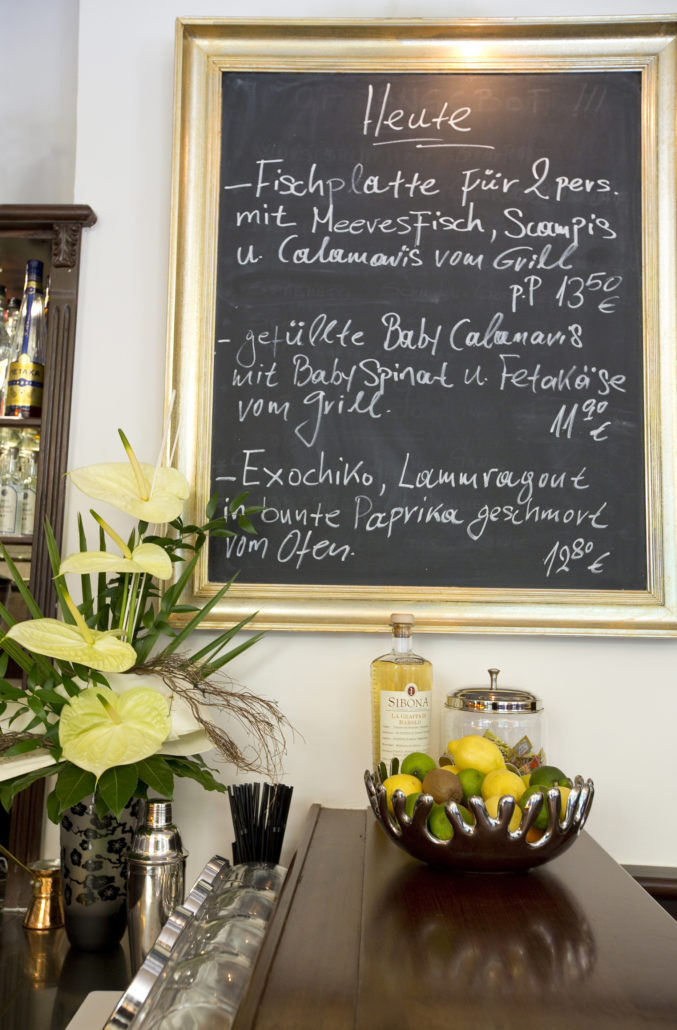 Heute
– Fischplatte für 2 pers.
mit Meeresfisch, Scampis
u. Calamaris vom Grill
p.P 13,50 €
– gefüllte Baby Calamaris
mit Baby Spinat u. Fetakäse
vom Grill.
11,90 €
– Exochiko, Lammragout
in bunte Paprika geschmort
vom Ofen.
12,80 €
METAXA
SIBONA
LA GRAPPA DI
BAROLO